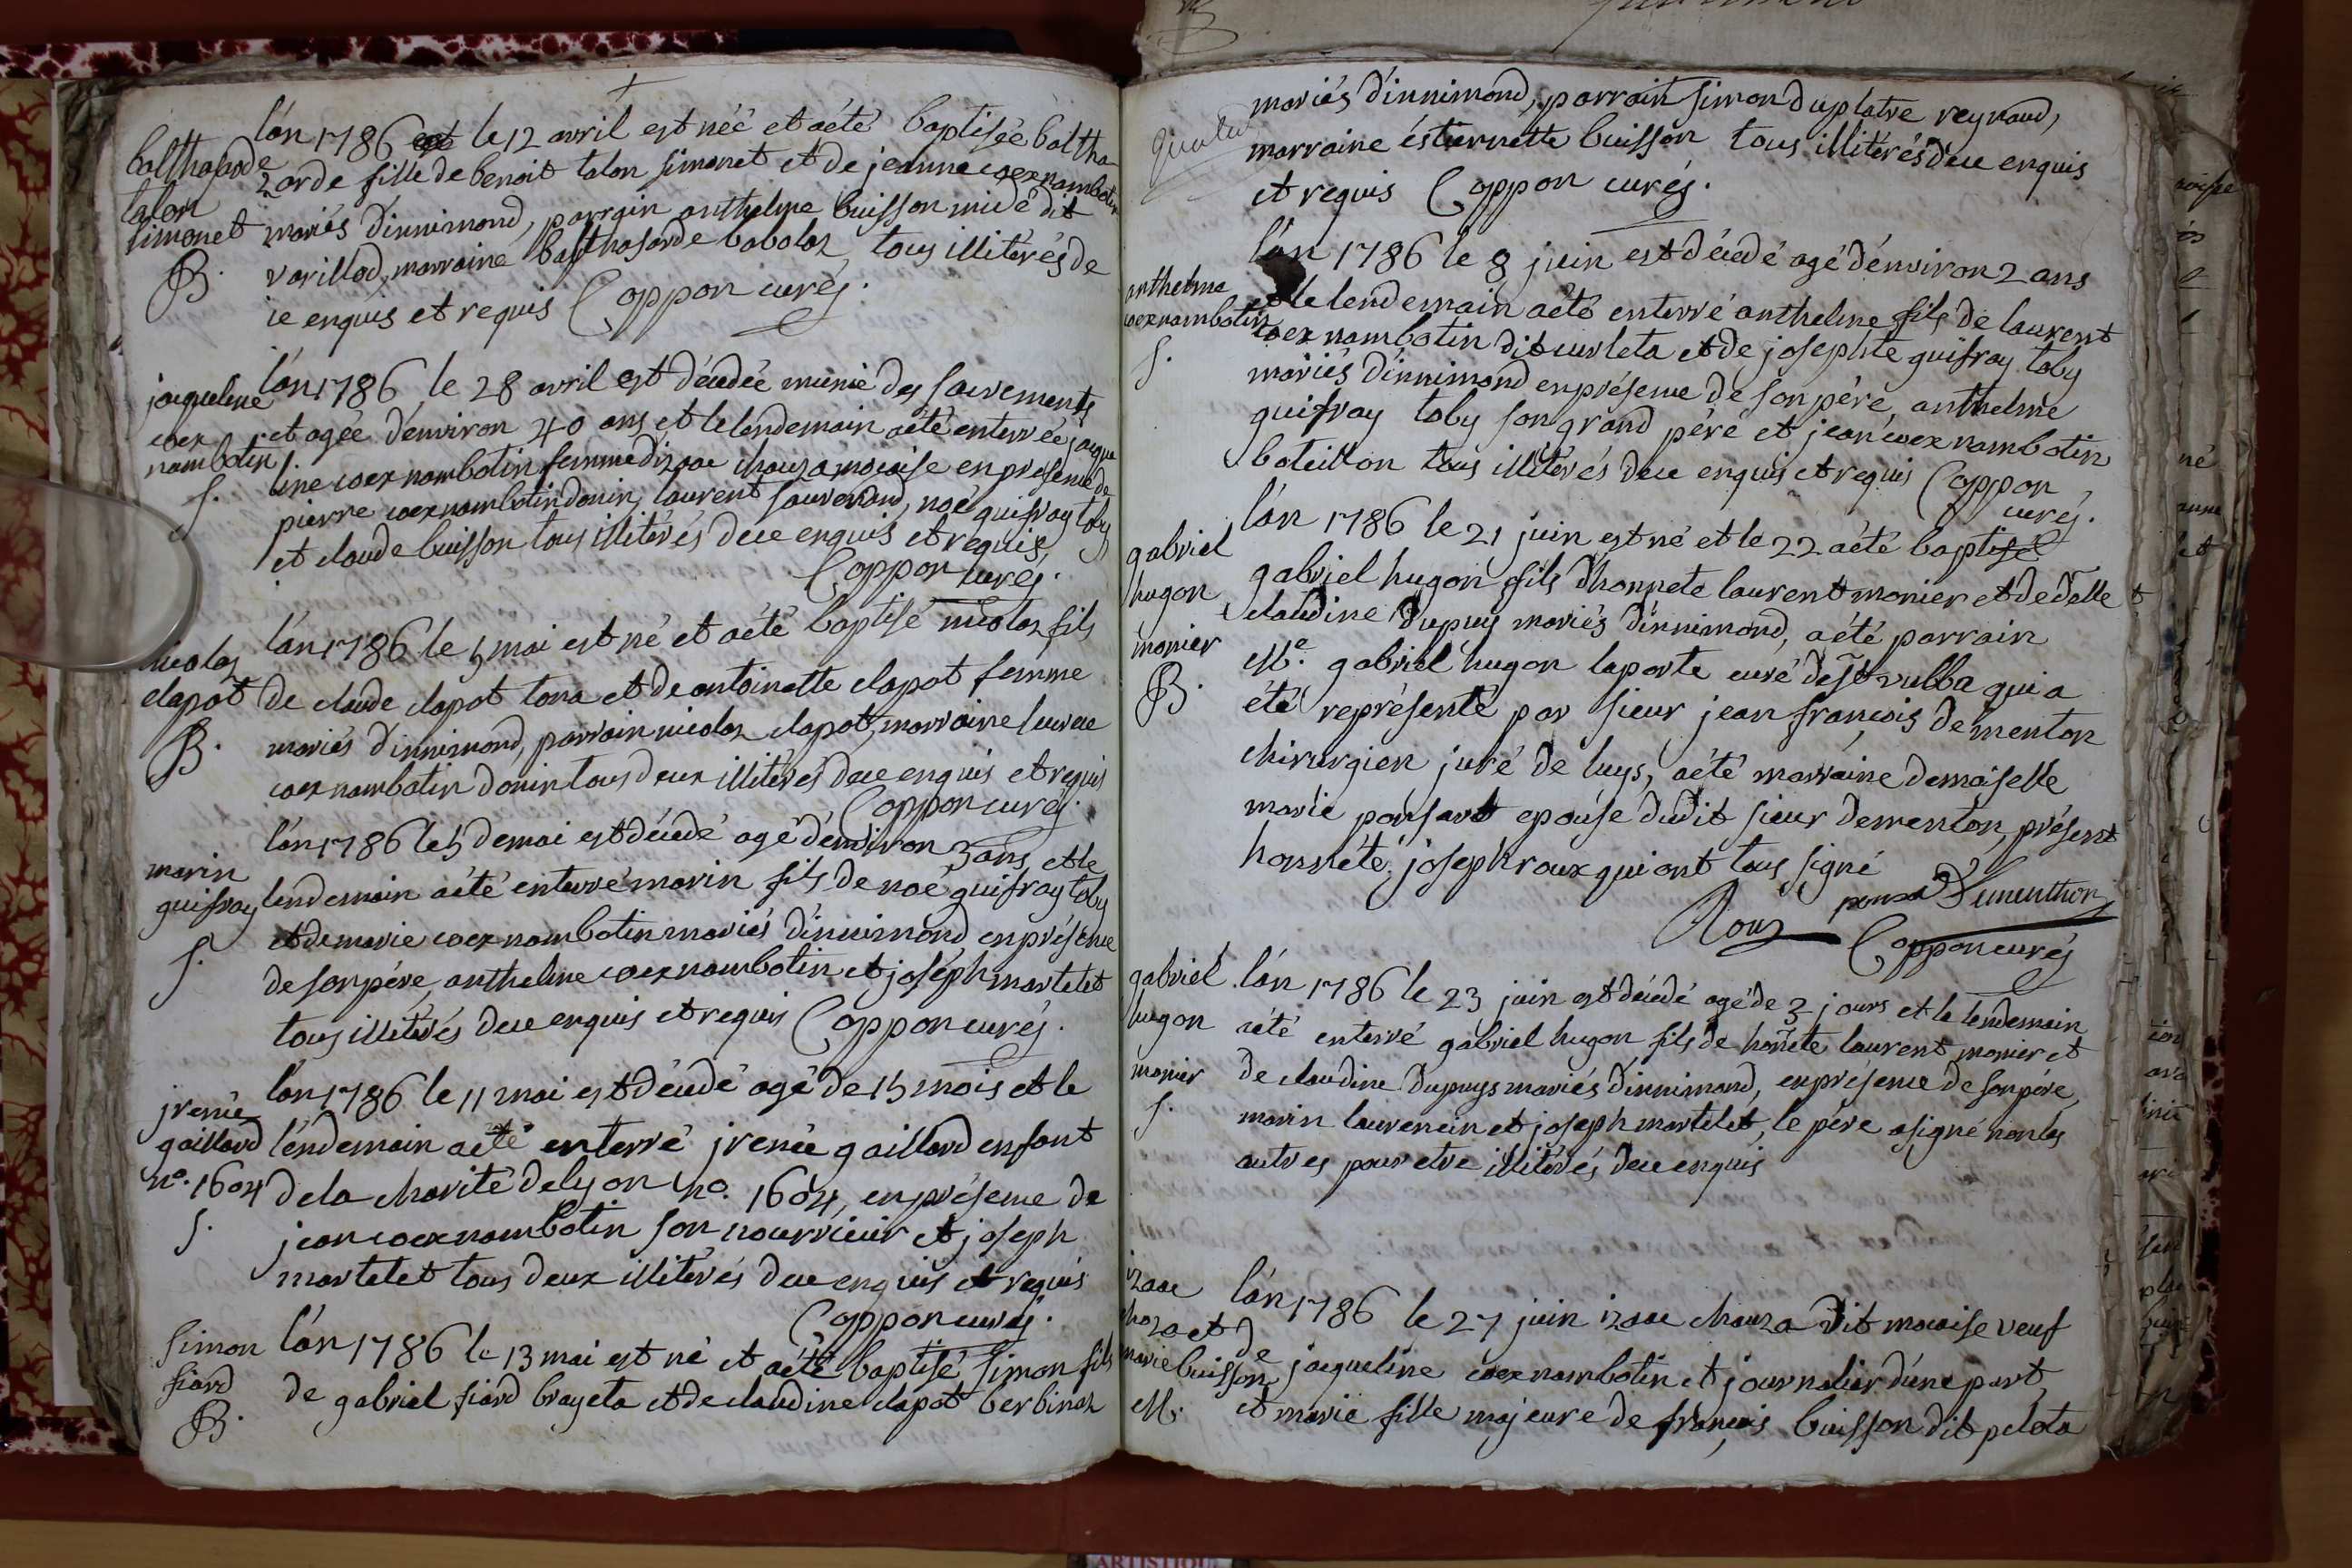 balthasarde
talon
simonet
B.
l'an 1786 le 12 avril est néé et aété baptisée baltha-
zarde fille de benoit talon simonet et de jeanne coex nambotin
mariés d'innimond, parrain anthelme buisson midé dit
varillod, marraine balthasarde babolaz, tous illitérés de
ce enquis et requis Coppon curé j.
jaqueline
coex
nambotin
s.
l'an 1786 le 28 avril est décédée munie des sacrements
et agée d'environ 40 ans et le lendemain aété enterrée jaque
line coex nambotin femme d'izaac chauza mocaise en présence de
pierre coex nambotin donin, laurent sauvonand, noé guifray toby
et claude buisson tous illitérés de ce enquis et requis,
Coppon curé j.
nicolaz
clapot
B.
l'an 1786 le 5 mai est né et aété baptisé nicolaz fils
de claude clapot tona et de antoinette clapot femme
mariés d'innimond, parrain nicolaz clapot, marraine lucrece
coex nambotin donin tous deux illitérés de ce enquis et requis
Coppon curé j.
marin
guifray
s.
l'an 1786 le 5 de mai est décédé agé d'environ 3 ans et le
lendemain aété enterré marin fils de noé guifray toby
et de marie coex nambotin mariés d'innimond en présence
de son pére, anthelme coex nambotin et joséph martelet
tous illitérés de ce enquis et requis Coppon curé j.
jrenée
gaillard
no. 1604
s.
l'an 1786 le 11 mai est décédé agé de 15 mois et le
léndemain aété enterré jrenée gaillard enfant
de la charité de lyon no. 1604, en présence de
jean coex nambotin son nourricier et joseph
martelet tous deux illitérés de ce enquis et requis
Coppon curé j.
simon
fiard
B.
l'an 1786 le 13 mai est né et aété baptisé simon fils
de gabriel fiard brayeta et de claudine clapot berbinaz
mariés d'innimond, parrain simon duplatre reynaud,
marraine éstiennette buisson tous illitérés de ce enquis
et requis Coppon curé j.
anthelme
coex nambotin
s.
l'an 1786 le 8 juin est décédé agé d'environ 2 ans
et le lendemain aété enterré anthelme fils de laurent
coex nambotin dit curleta et de josephte guifray toby
mariés d'innimond en présence de son pére, anthelme
guifray toby son grand pére et jean coex nambotin
boteillon tous illitérés de ce enquis et requis Coppon
curé j.
gabriel
hugon
monier
B.
l'an 1786 le 21 juin est né et le 22 aété baptisé
gabriel hugon fils d'honnete laurent monier et de delle
claudine dupuys mariés d'innimond, aété parrain
Me. gabriel hugon laporte curé de st vulba qui a
été représenté par sieur jean françois dementon
chirurgien juré de luys, aété marraine demoiselle
marie ponsart epouse dudit sieur dementon, présent
honnéte joseph roux qui ont tous signé
ponsar Dementhon
Roux Coppon curé j
gabriel
hugon
monier
s.
l'an 1786 le 23 juin est décédé agé de 3 jours et le lendemain
aété enterré gabriel hugon fils de honnete laurent monier et
de claudine dupuys mariés d'innimond, en présence de son pére,
marin laurencin et joseph martelet, le pére a signé non les
autres pour etre illitérés de ce enquis
izaac
choza et
marie buisson
M.
l'an 1786 le 27 juin izaac chouza dit mocaise veuf
de jaqueline coex nambotin et journalier d'une part,
et marie fille majeure de françois buisson dit pelota